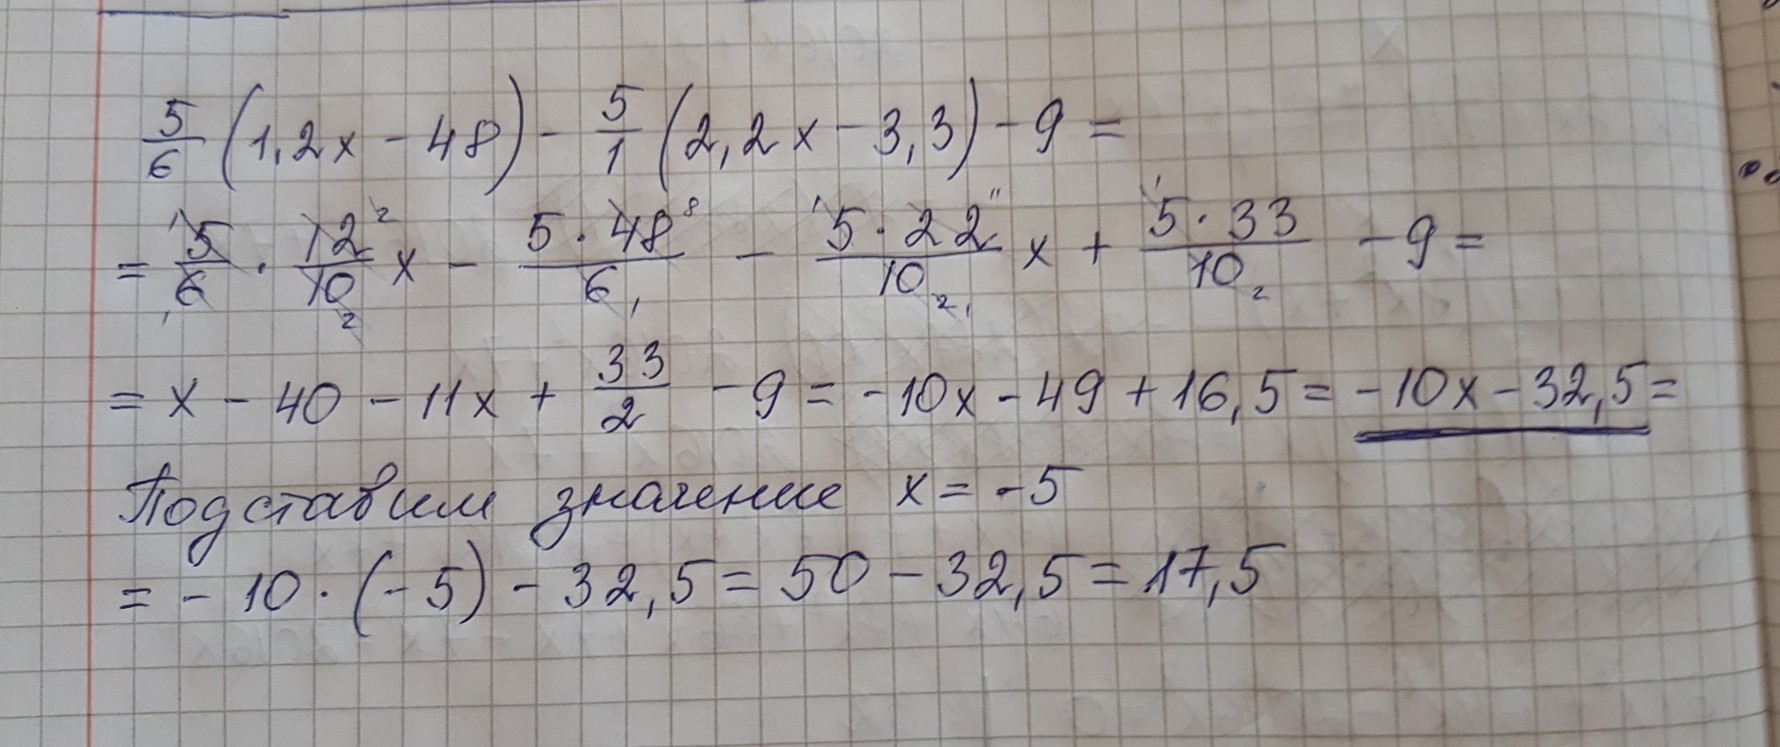 5/6 (1,2x - 48) - 5/1 (2,2x - 3,3) - 9 =
= 5/6 · 12/10 x - 5·48/6 - 5·22/10 x + 5·33/10 - 9 =
= x - 40 - 11x + 33/2 - 9 = -10x - 49 + 16,5 = -10x - 32,5 =
Подставим значение x = -5
= - 10 · (-5) - 32,5 = 50 - 32,5 = 17,5